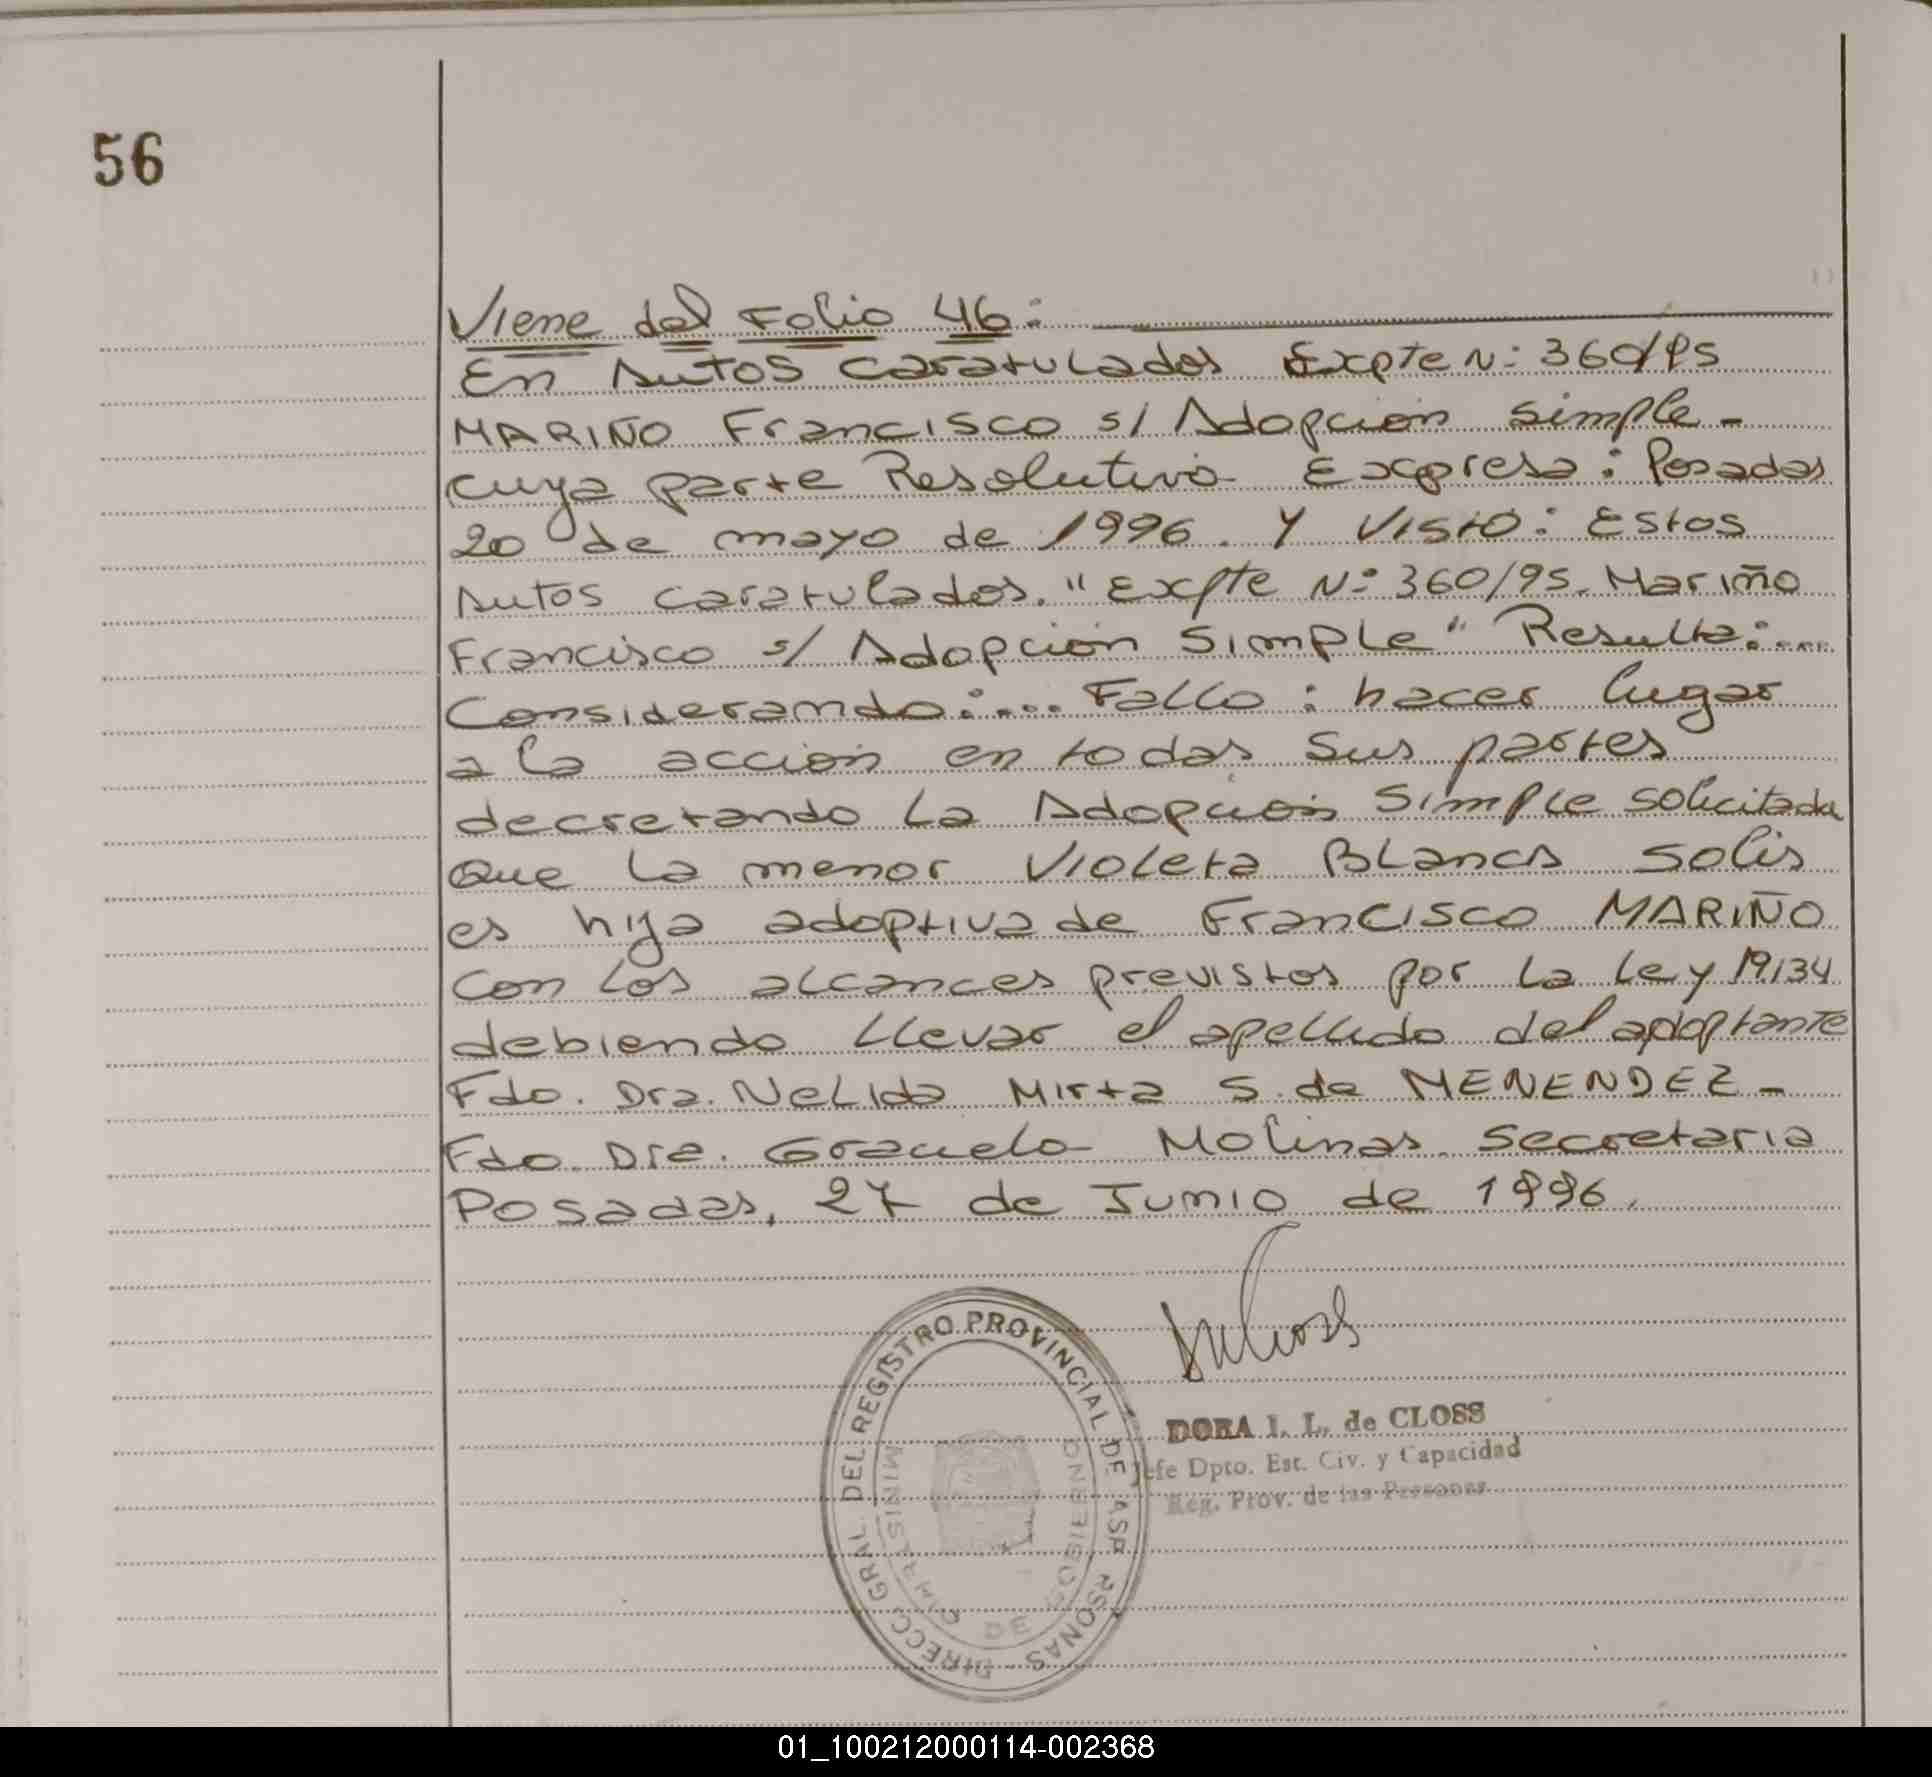 56
Viene del Folio 46:
En Autos caratulados Expte N: 360/95
MARIÑO Francisco s/ Adopción simple -
cuya parte Resolutiva Expresa: Posadas
20 de mayo de 1996. Y Visto: Estos
Autos caratulados. "Expte N: 360/95. Mariño
Francisco s/ Adopción Simple" Resulta:....
Considerando:.... Fallo: hacer lugar
a la acción en todas sus partes
decretando la Adopción Simple solicitada
Que la menor Violeta Blanca Solis
es hija adoptiva de Francisco MARIÑO
con los alcances previstos por la Ley 19.134
debiendo llevar el apellido del adoptante
Fdo. Dra. Nelida Mirta S. de MENENDEZ -
Fdo. Dra. Graciela Molinas. Secretaria
Posadas, 27 de Junio de 1996.
DIRECC. GRAL. DEL REGISTRO PROVINCIAL DE LAS PERSONAS
MINISTERIO DE GOBIERNO
DORA I. L. de CLOSS
Jefe Dpto. Est. Civ. y Capacidad
Reg. Prov. de las Personas
01_100212000114-002368